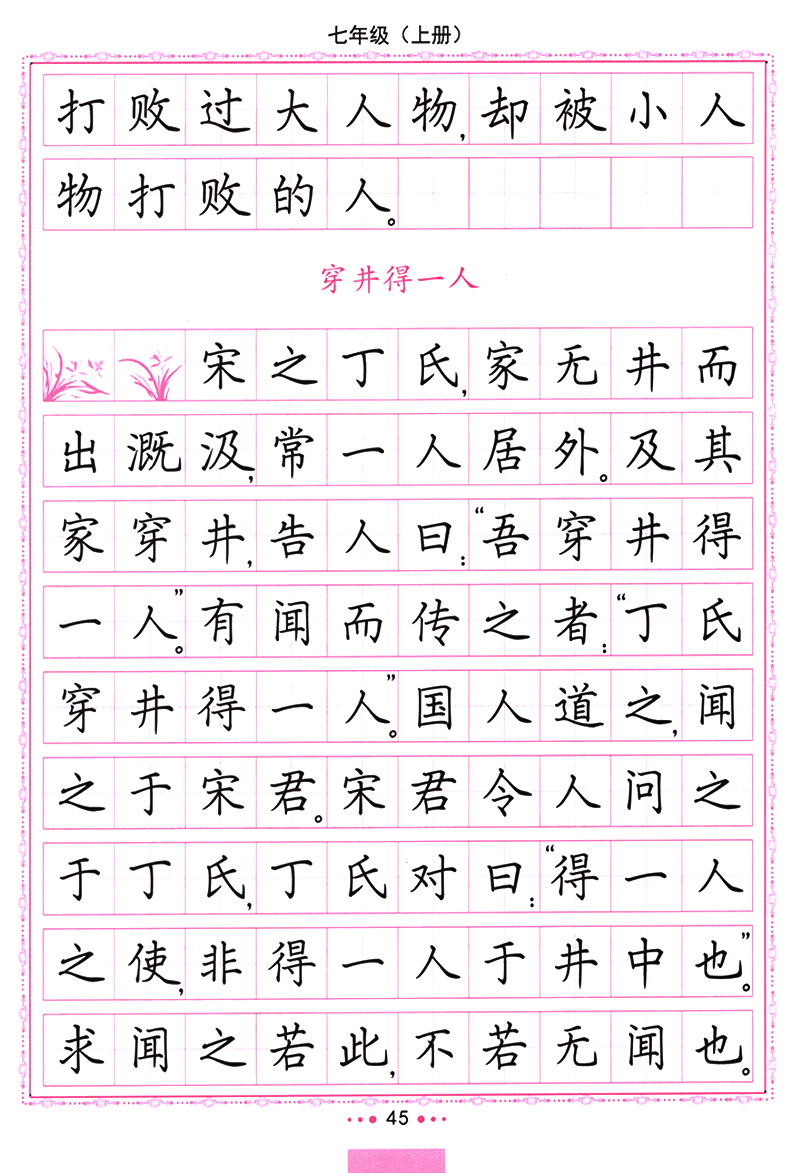 七年级（上册）
打败过大人物，却被小人
物打败的人。
穿井得一人
宋之丁氏，家无井而
出溉汲，常一人居外。及其
家穿井，告人曰：“吾穿井得
一人。”有闻而传之者：“丁氏
穿井得一人。”国人道之，闻
之于宋君。宋君令人问之
于丁氏，丁氏对曰：“得一人
之使，非得一人于井中也。”
求闻之若此，不若无闻也。
45